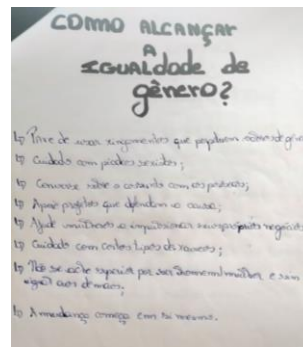 COMO ALCANÇAR
A
IGUALDADE DE
GÊNERO?
↳ Pare de usar xingamentos que
↳ Cuidado com piadas sexistas;
↳ Converse sobre o assunto com as pessoas;
↳ Apoie projetos que defendem a causa;
↳ Ajude mulheres a impulsionar seus próprios negócios
↳ Cuidado com certos tipos de
↳ Não se ache superior por ser homem/mulher e sim
igual aos demais;
↳ A mudança começa em tu mesmo.